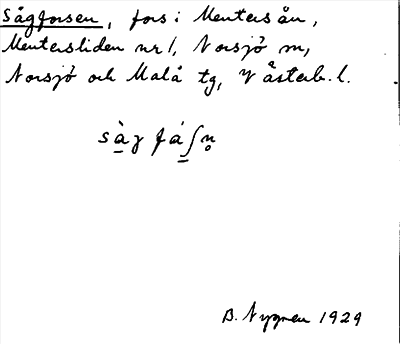 Sågforsen, fors i Mentersån,
Mentersliden nr 1, Norsjö sn,
Norsjö och Malå tg, Västerb. l.
sàg fáʃn̥
B. Nygren 1929